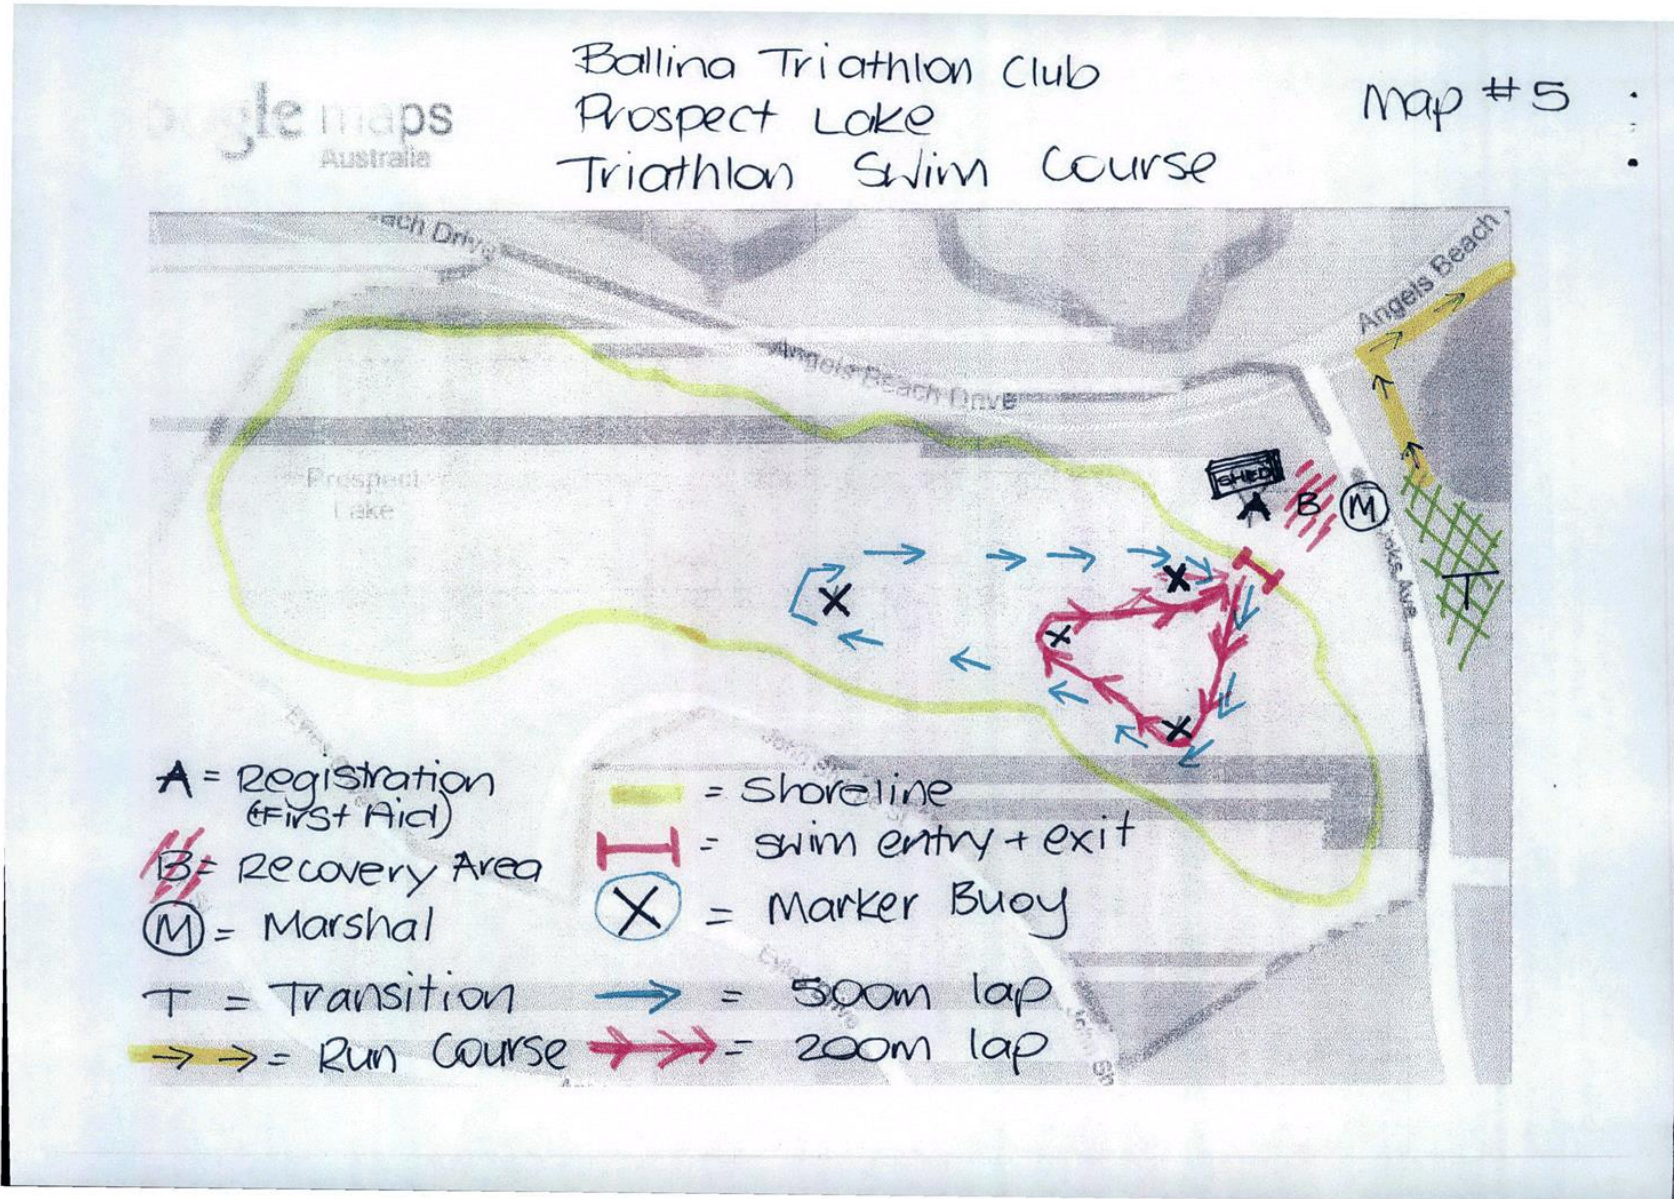 Ballina Triathlon Club
Prospect Lake
Triathlon Swim Course
Map #5
ogle maps
Australia
ach Drive
Angels Beach
Angels Beach Drive
Prospect
Lake
SHED
A
B
M
T
oks Ave
A = Registration
(First Aid)
B = Recovery Area
M = Marshal
T = Transition
→ → = Run Course
= Shoreline
= Swim entry + exit
X = Marker Buoy
→ = 500m lap
= 200m lap